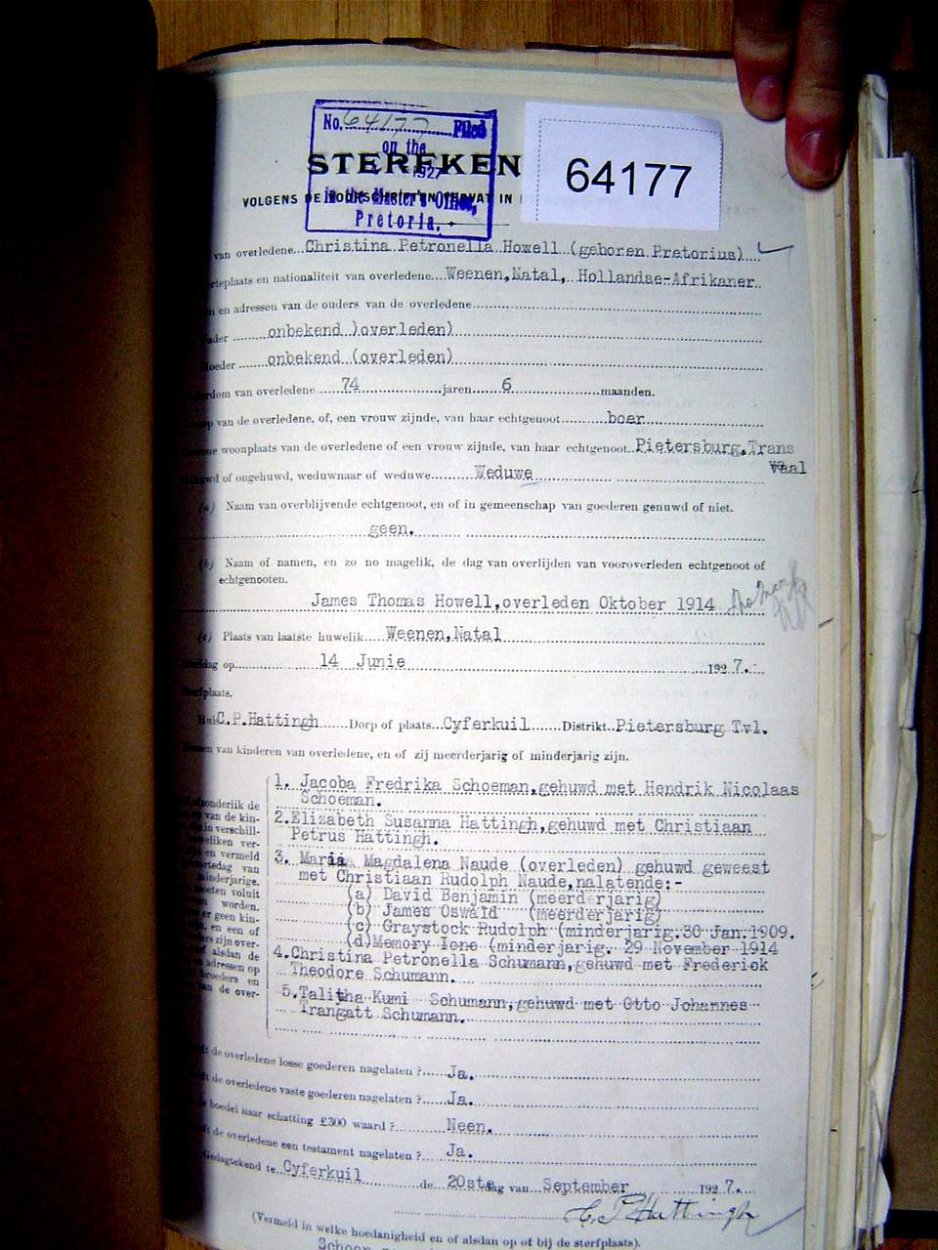 No. 64177 Filed
on the
1927
in the Master's Office,
Pretoria.
STERFKEN
64177
VOLGENS DE IN
van overledene...Christina Petronella Howell (geboren Pretorius)
rteplaats en nationaliteit van overledene....Weenen,Natal, Hollandse-Afrikaner
en adressen van de ouders van de overledene
ader onbekend )overleden)
oeder onbekend (overleden)
erdom van overledene 74 jaren 6 maanden.
ep van de overledene, of, een vrouw zijnde, van haar echtgenoot boer
woonplaats van de overledene of een vrouw zijnde, van haar echtgenoot..Pietersburg,Trans
vaal
wd of ongehuwd, weduwnaar of weduwe Weduwe
(a) Naam van overblijvende echtgenoot, en of in gemeenschap van goederen gehuwd of niet.
geen.
(b) Naam of namen, en zo no magelik, de dag van overlijden van vooroverleden echtgenoot of
echtgenooten.
James Thomas Howell,overleden Oktober 1914
(c) Plaats van laatste huwelik Weenen,Natal
dag op 14 Junie 1927.
Sterfplaats.
Huis C.P.Hattingh Dorp of plaats Cyferkuil Distrikt Pietersburg Tvl.
Namen van kinderen van overledene, en of zij meerderjarig of minderjarig zijn.
1. Jacoba Fredrika Schoeman,gehuwd met Hendrik Nicolaas
Schoeman.
2.Elizabeth Susanna Hattingh,gehuwd met Christiaan
Petrus Hattingh.
3. Maria Magdalena Naude (overleden) gehuwd geweest
met Christiaan Rudolph Naude,nalatende:-
(a) David Benjamin (meerderjarig)
(b) James Oswald (meerderjarig)
(c) Graystock Rudolph (minderjarig.30 Jan.1909.
(d)Memory Ione (minderjarig. 29 November 1914
4.Christina Petronella Schumann,gehuwd met Frederick
Theodore Schumann.
5.Talitha Kumi Schumann,gehuwd met Otto Johannes
Trangatt Schumann.
afzonderlik de
van de kin-
in verschill-
weliken ver-
en vermeld
rtedag van
minderjarige.
moeten voluit
worden.
er geen kin-
en een of
rs zijn over-
alsdan de
adressen op
broeders en
van de over-
de overledene losse goederen nagelaten ? Ja.
de overledene vaste goederen nagelaten ? Ja.
boedel naar schatting £300 waard ? Neen.
de overledene een testament nagelaten ? Ja.
Gedagtekend te Cyferkuil de 20ste dag van September 1927.
C. P. Hattingh
(Vermeld in welke hoedanigheid en of alsdan op of bij de sterfplaats).